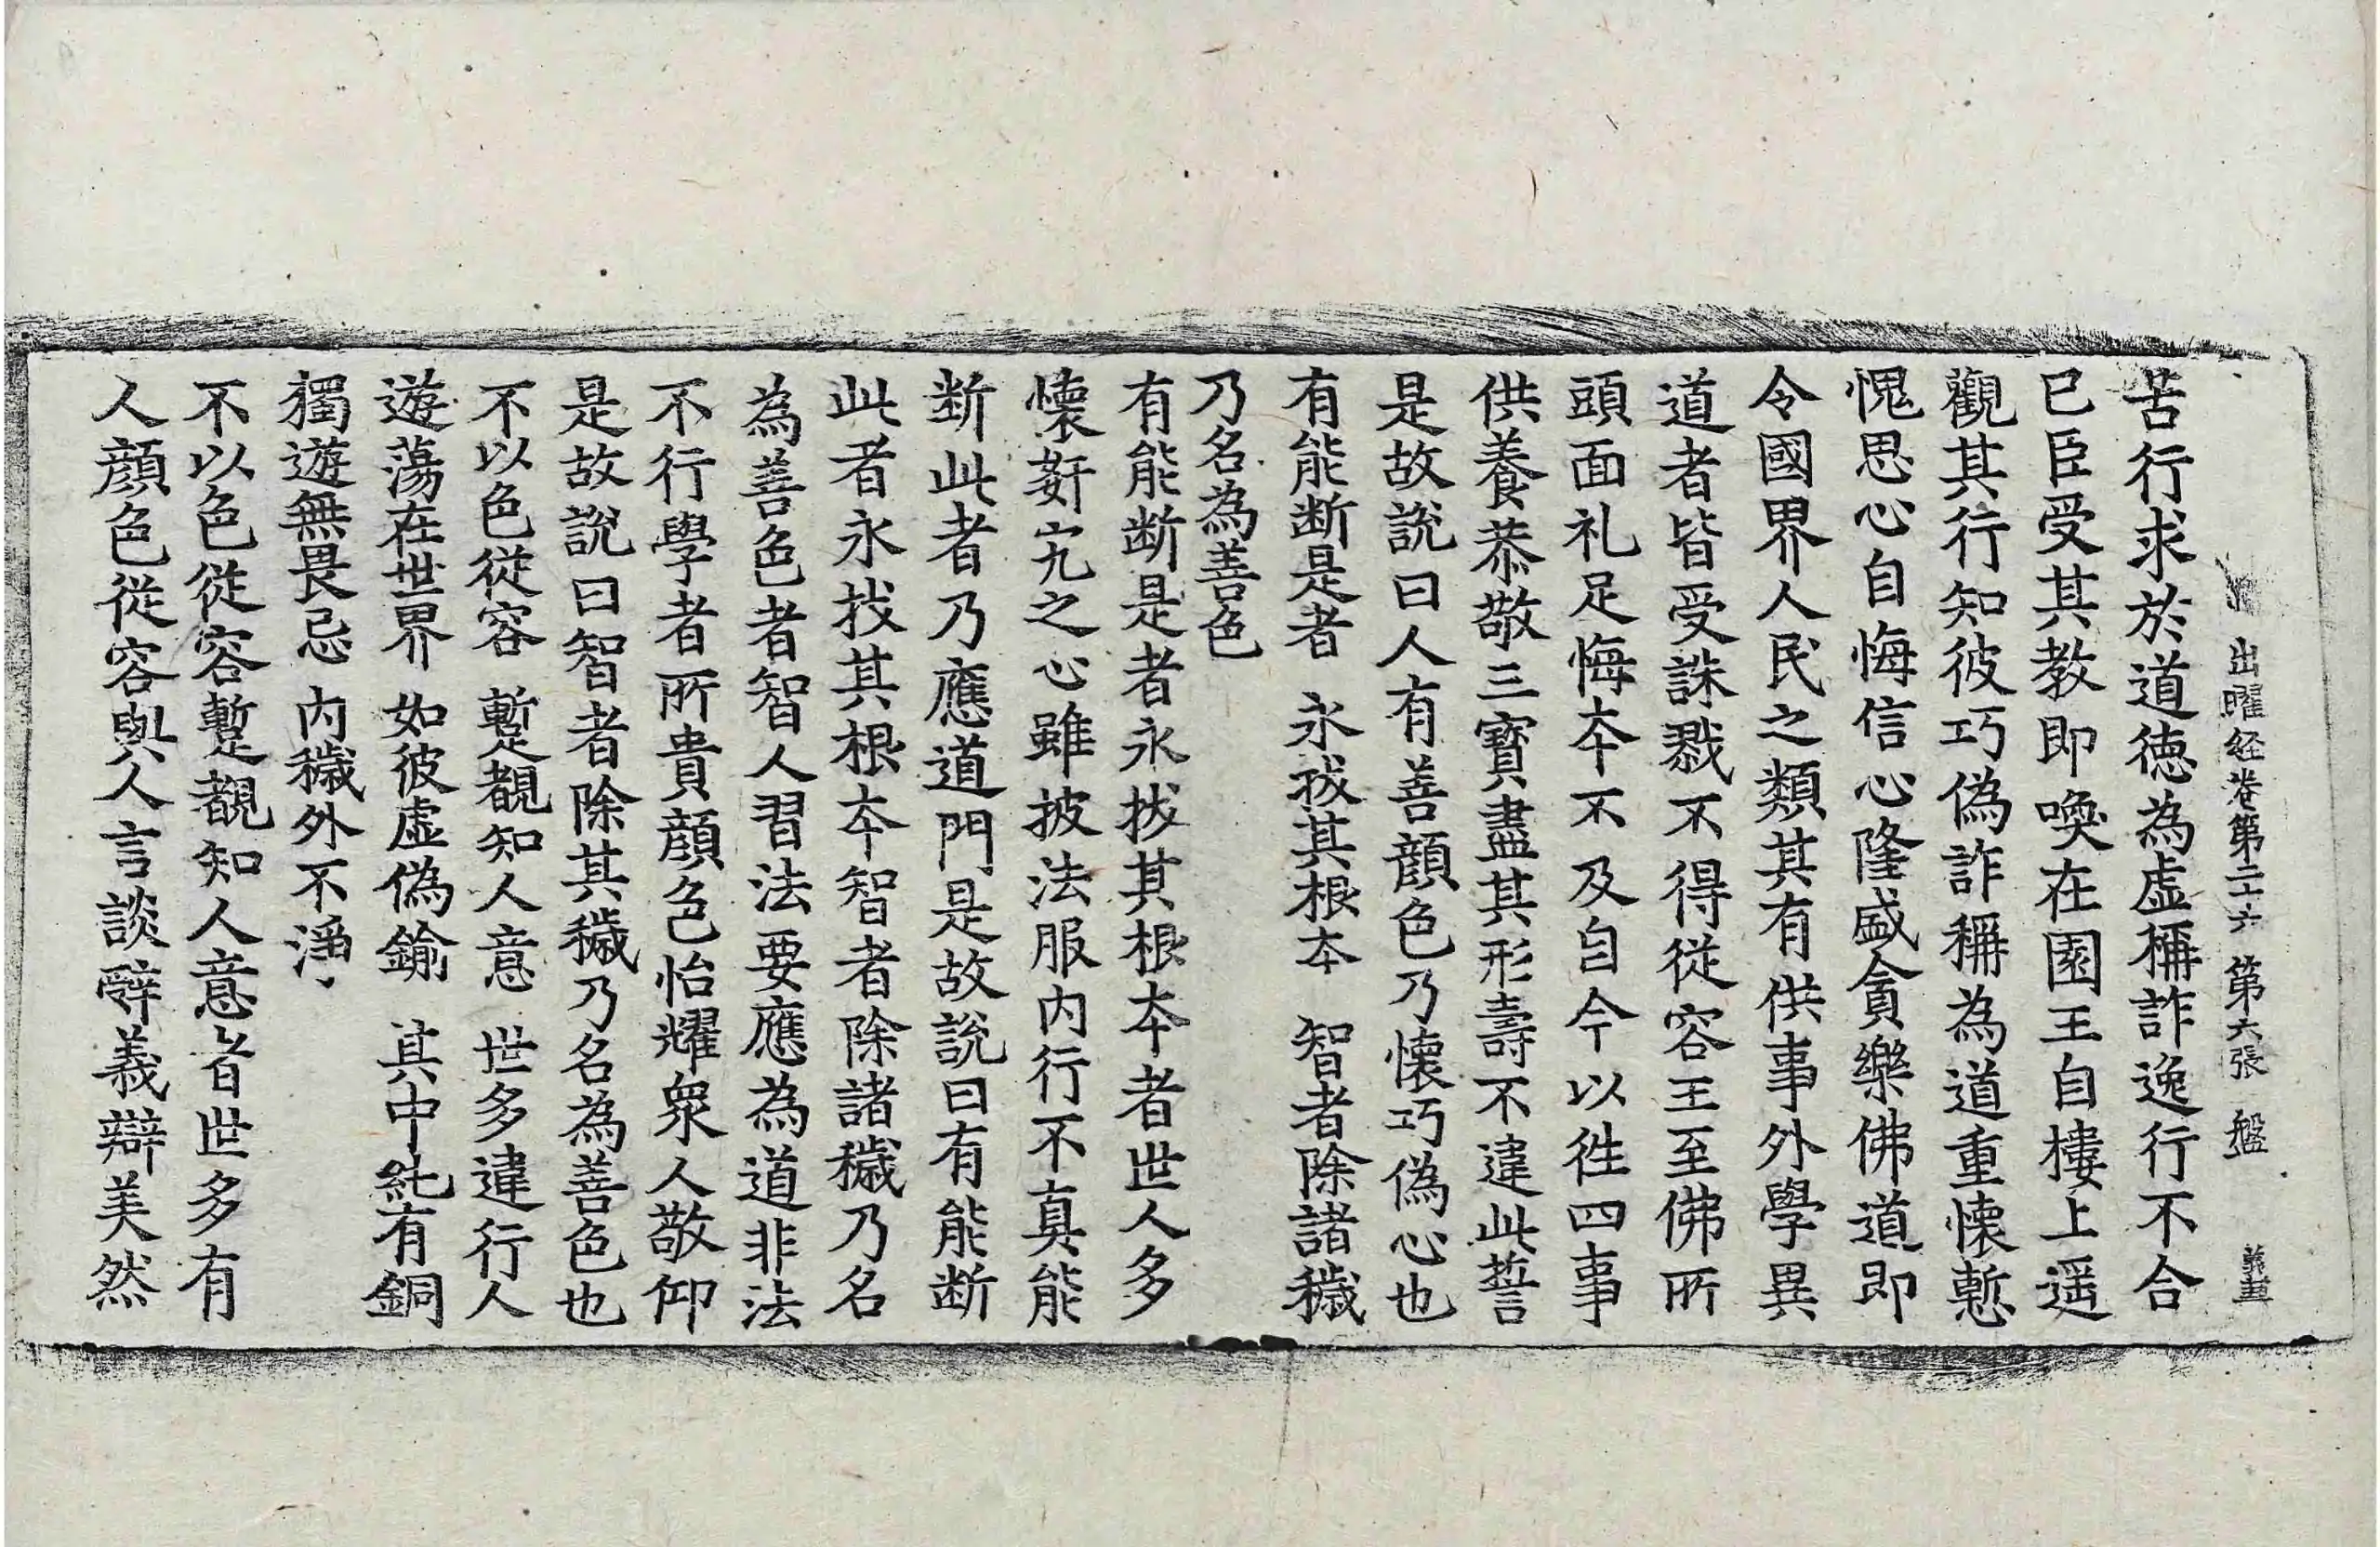 出曜経卷第二十六 第六張 盤
苦行求於道德為虛稱詐逸行不合
已臣受其教即喚在園王自樓上遥
觀其行知彼巧偽詐稱為道重懷慙
愧思心自悔信心隆盛貪樂佛道即
令國界人民之類其有供事外學異
道者皆受誅戮不得從容王至佛所
頭面礼足悔夲不及自今以徃四事
供養恭敬三寳盡其形壽不違此誓
是故說曰人有善顔色乃懷巧偽心也
有能断是者 永拔其根夲 智者除諸穢
乃名為善色
有能断是者永拔其根夲者世人多
懷姧宄之心雖披法服内行不真能
断此者乃應道門是故說曰有能断
此者永拔其根夲智者除諸穢乃名
為善色者智人習法要應為道非法
不行學者所貴顔色怡耀衆人敬仰
是故說曰智者除其穢乃名為善色也
不以色從容 暫覩知人意 世多違行人
遊蕩在世界 如彼虛偽鍮 其中純有銅
獨遊無畏忌 内穢外不淨
不以色從容暫覩知人意者世多有
人顔色從容與人言談辭義辯美然